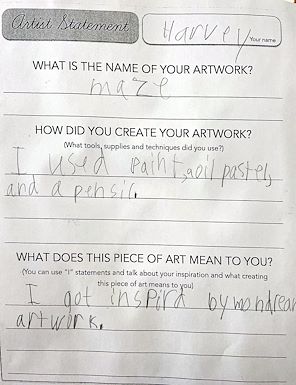 Artist Statement
Harvey
Your name
WHAT IS THE NAME OF YOUR ARTWORK?
maze
HOW DID YOU CREATE YOUR ARTWORK?
(What tools, supplies and techniques did you use?)
I used paint, oil pastel,
and a pensil.
WHAT DOES THIS PIECE OF ART MEAN TO YOU?
(You can use "I" statements and talk about your inspiration and what creating
this piece of art means to you)
I got inspird by mondrean
artwork.